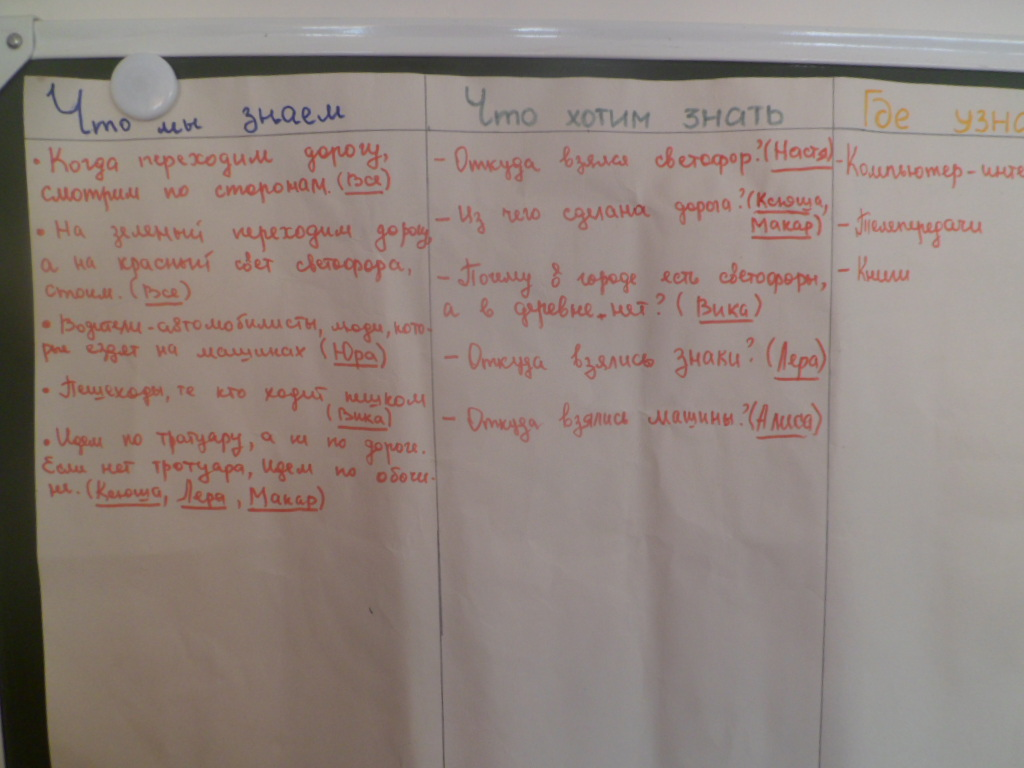 Что мы знаем
• Когда переходим дорогу,
смотрим по сторонам. (Все)
• На зеленый переходим дорогу,
а на красный свет светофора,
стоим. (Все)
• Водители-автомобилисты, люди, кото-
рые ездят на машинах (Юра)
• Пешеходы, те кто ходит пешком
(Вика)
• Идем по тротуару, а не по дороге.
Если нет тротуара, идем по обочи-
не. (Ксюша, Лера, Макар)
Что хотим знать
- Откуда взялся светофор? (Настя)
- Из чего сделана дорога? (Ксюша,
Макар)
- Почему в городе есть светофоры,
а в деревне нет? (Вика)
- Откуда взялись знаки? (Лера)
- Откуда взялись машины? (Алиса)
Где узна
- Компьютер-инте
- Телепередачи
- Книги